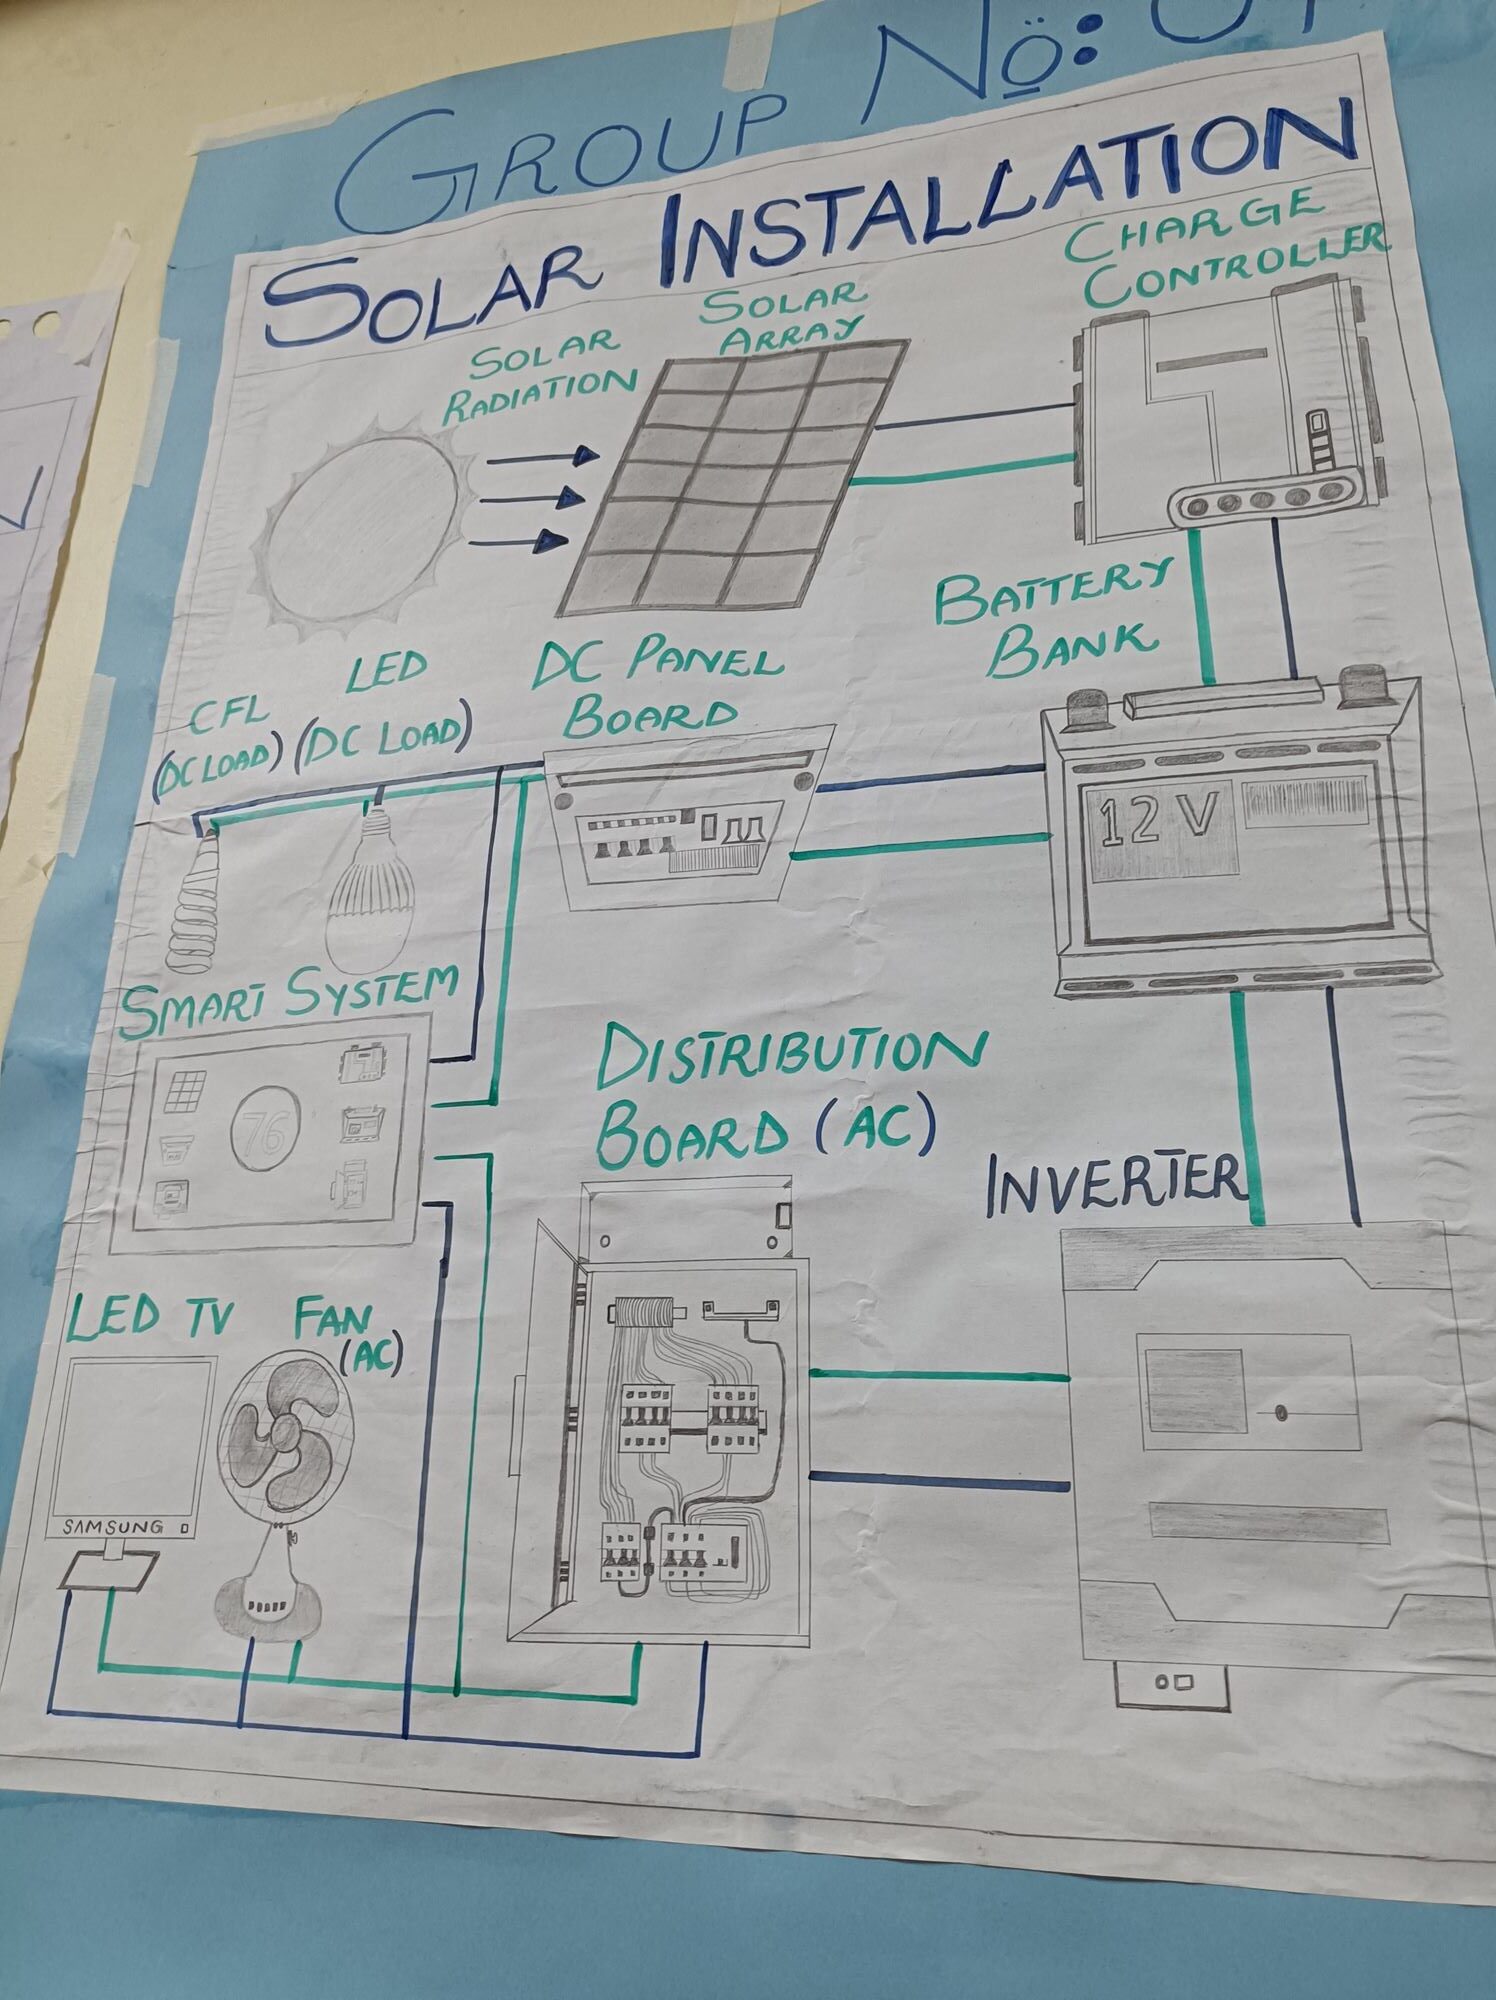 GROUP NO:
SOLAR INSTALLATION
SOLAR
RADIATION
SOLAR
ARRAY
CHARGE
CONTROLLER
CFL
(DC LOAD)
LED
(DC LOAD)
DC PANEL
BOARD
BATTERY
BANK
12 V
SMART SYSTEM
76
DISTRIBUTION
BOARD (AC)
INVERTER
LED TV
FAN
(AC)
SAMSUNG